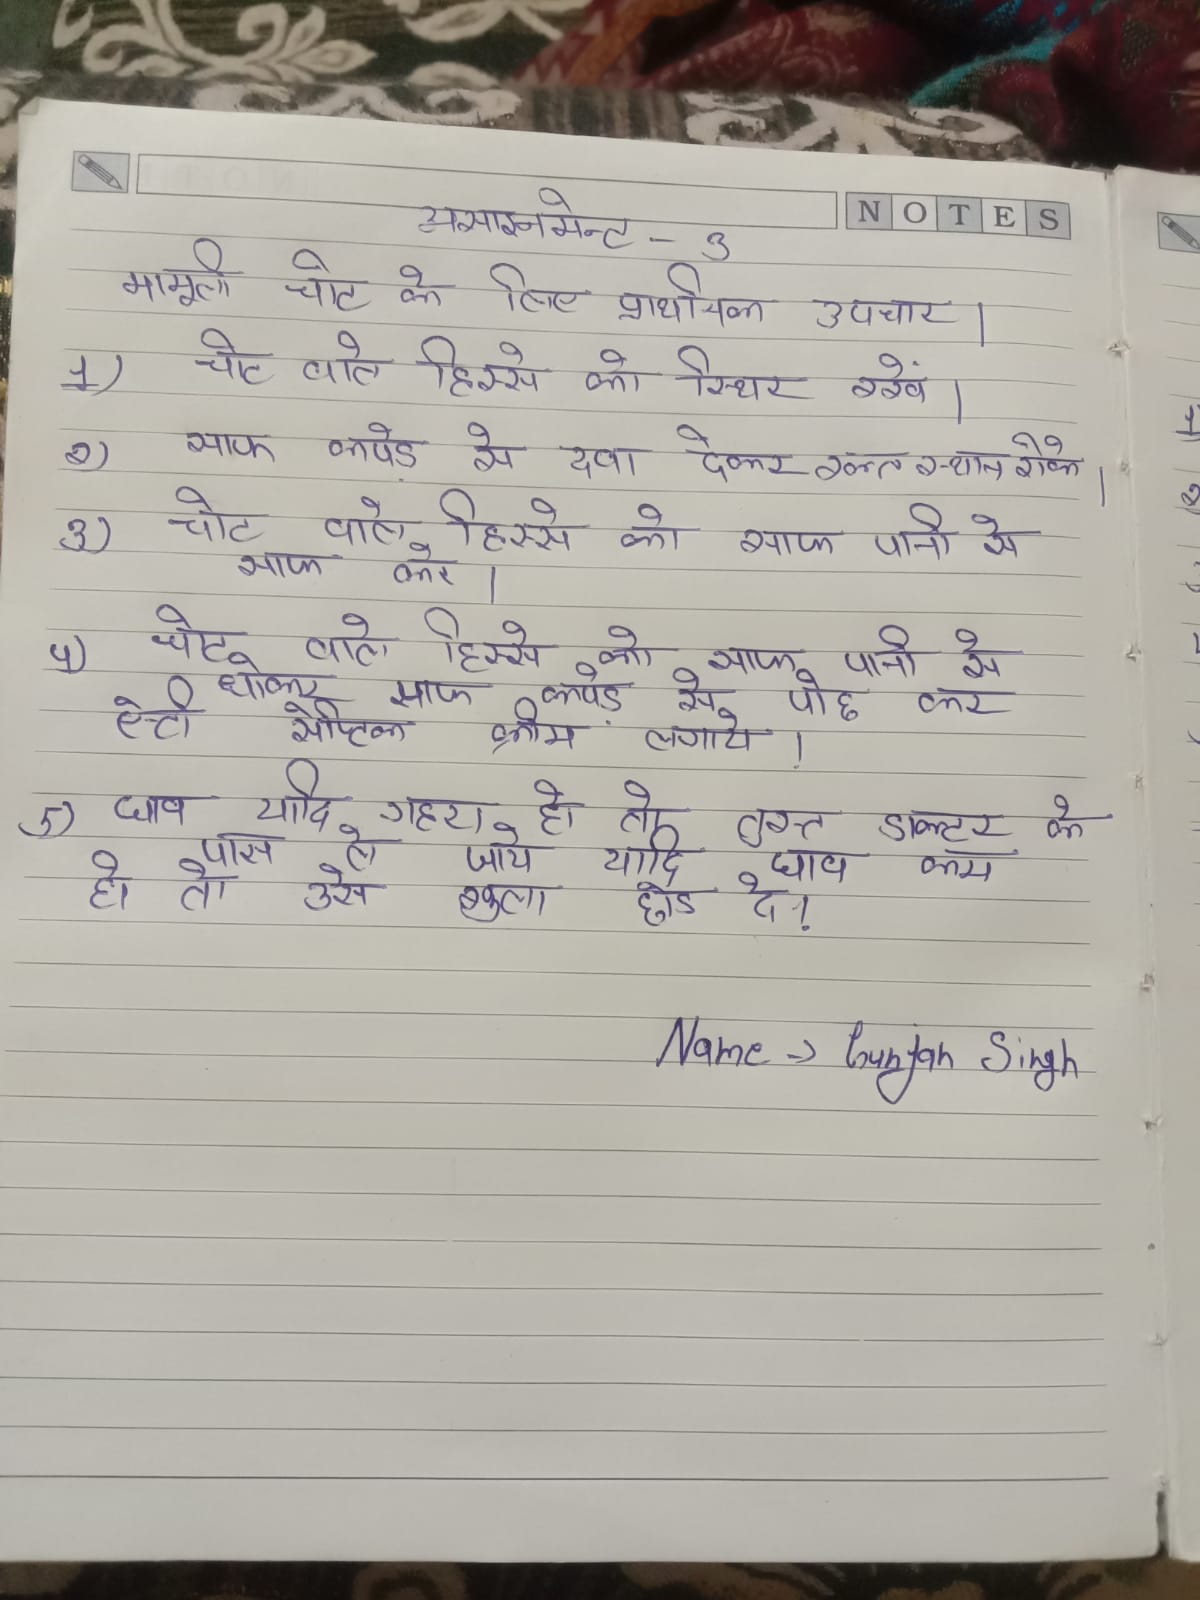 NOTES
असाइनमेन्ट - 3
मामूली चोट के लिए प्राथमिक उपचार ।
1) चोट वाले हिस्से को स्थिर रखें ।
2) साफ कपड़े से दवा देकर रक्त स्थान रोके ।
3) चोट वाले हिस्से को साफ पानी से
साफ करे ।
4) चोट वाले हिस्से को साफ पानी से
धोकर साफ कपड़े से पोछ कर
ऐन्टी सेप्टिक क्रीम लगाये ।
5) घाव यदि गहरा हो तो तुरन्त डाक्टर के
पास ले जाये यदि घाव कम
हो तो उसे खुला छोड दे ।
Name → Gunjan Singh